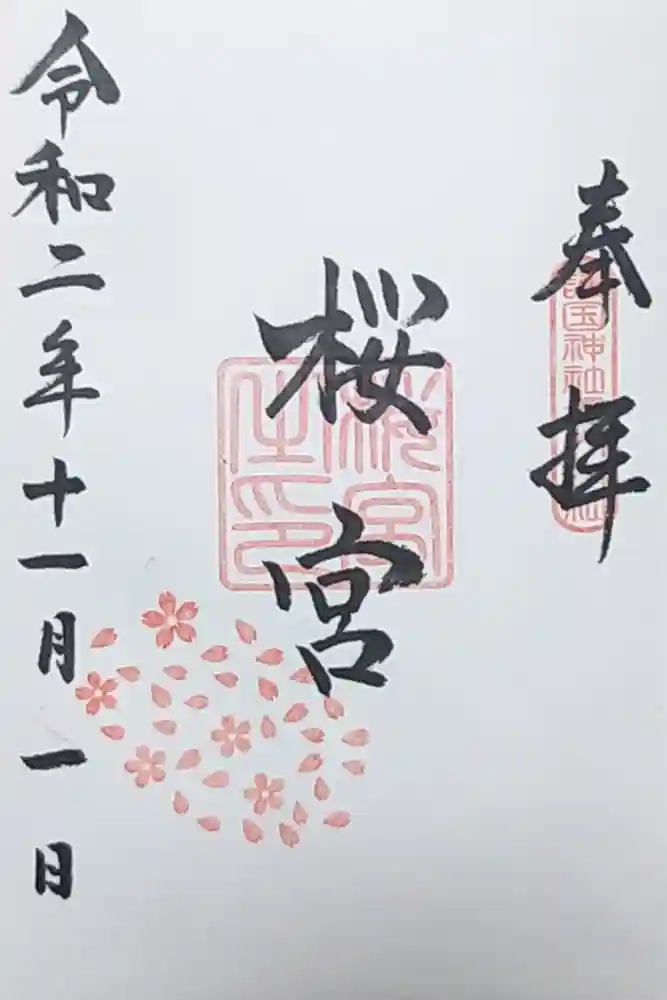 奉拝
護国神社
桜宮
桜宮
之印
令和二年十一月一日